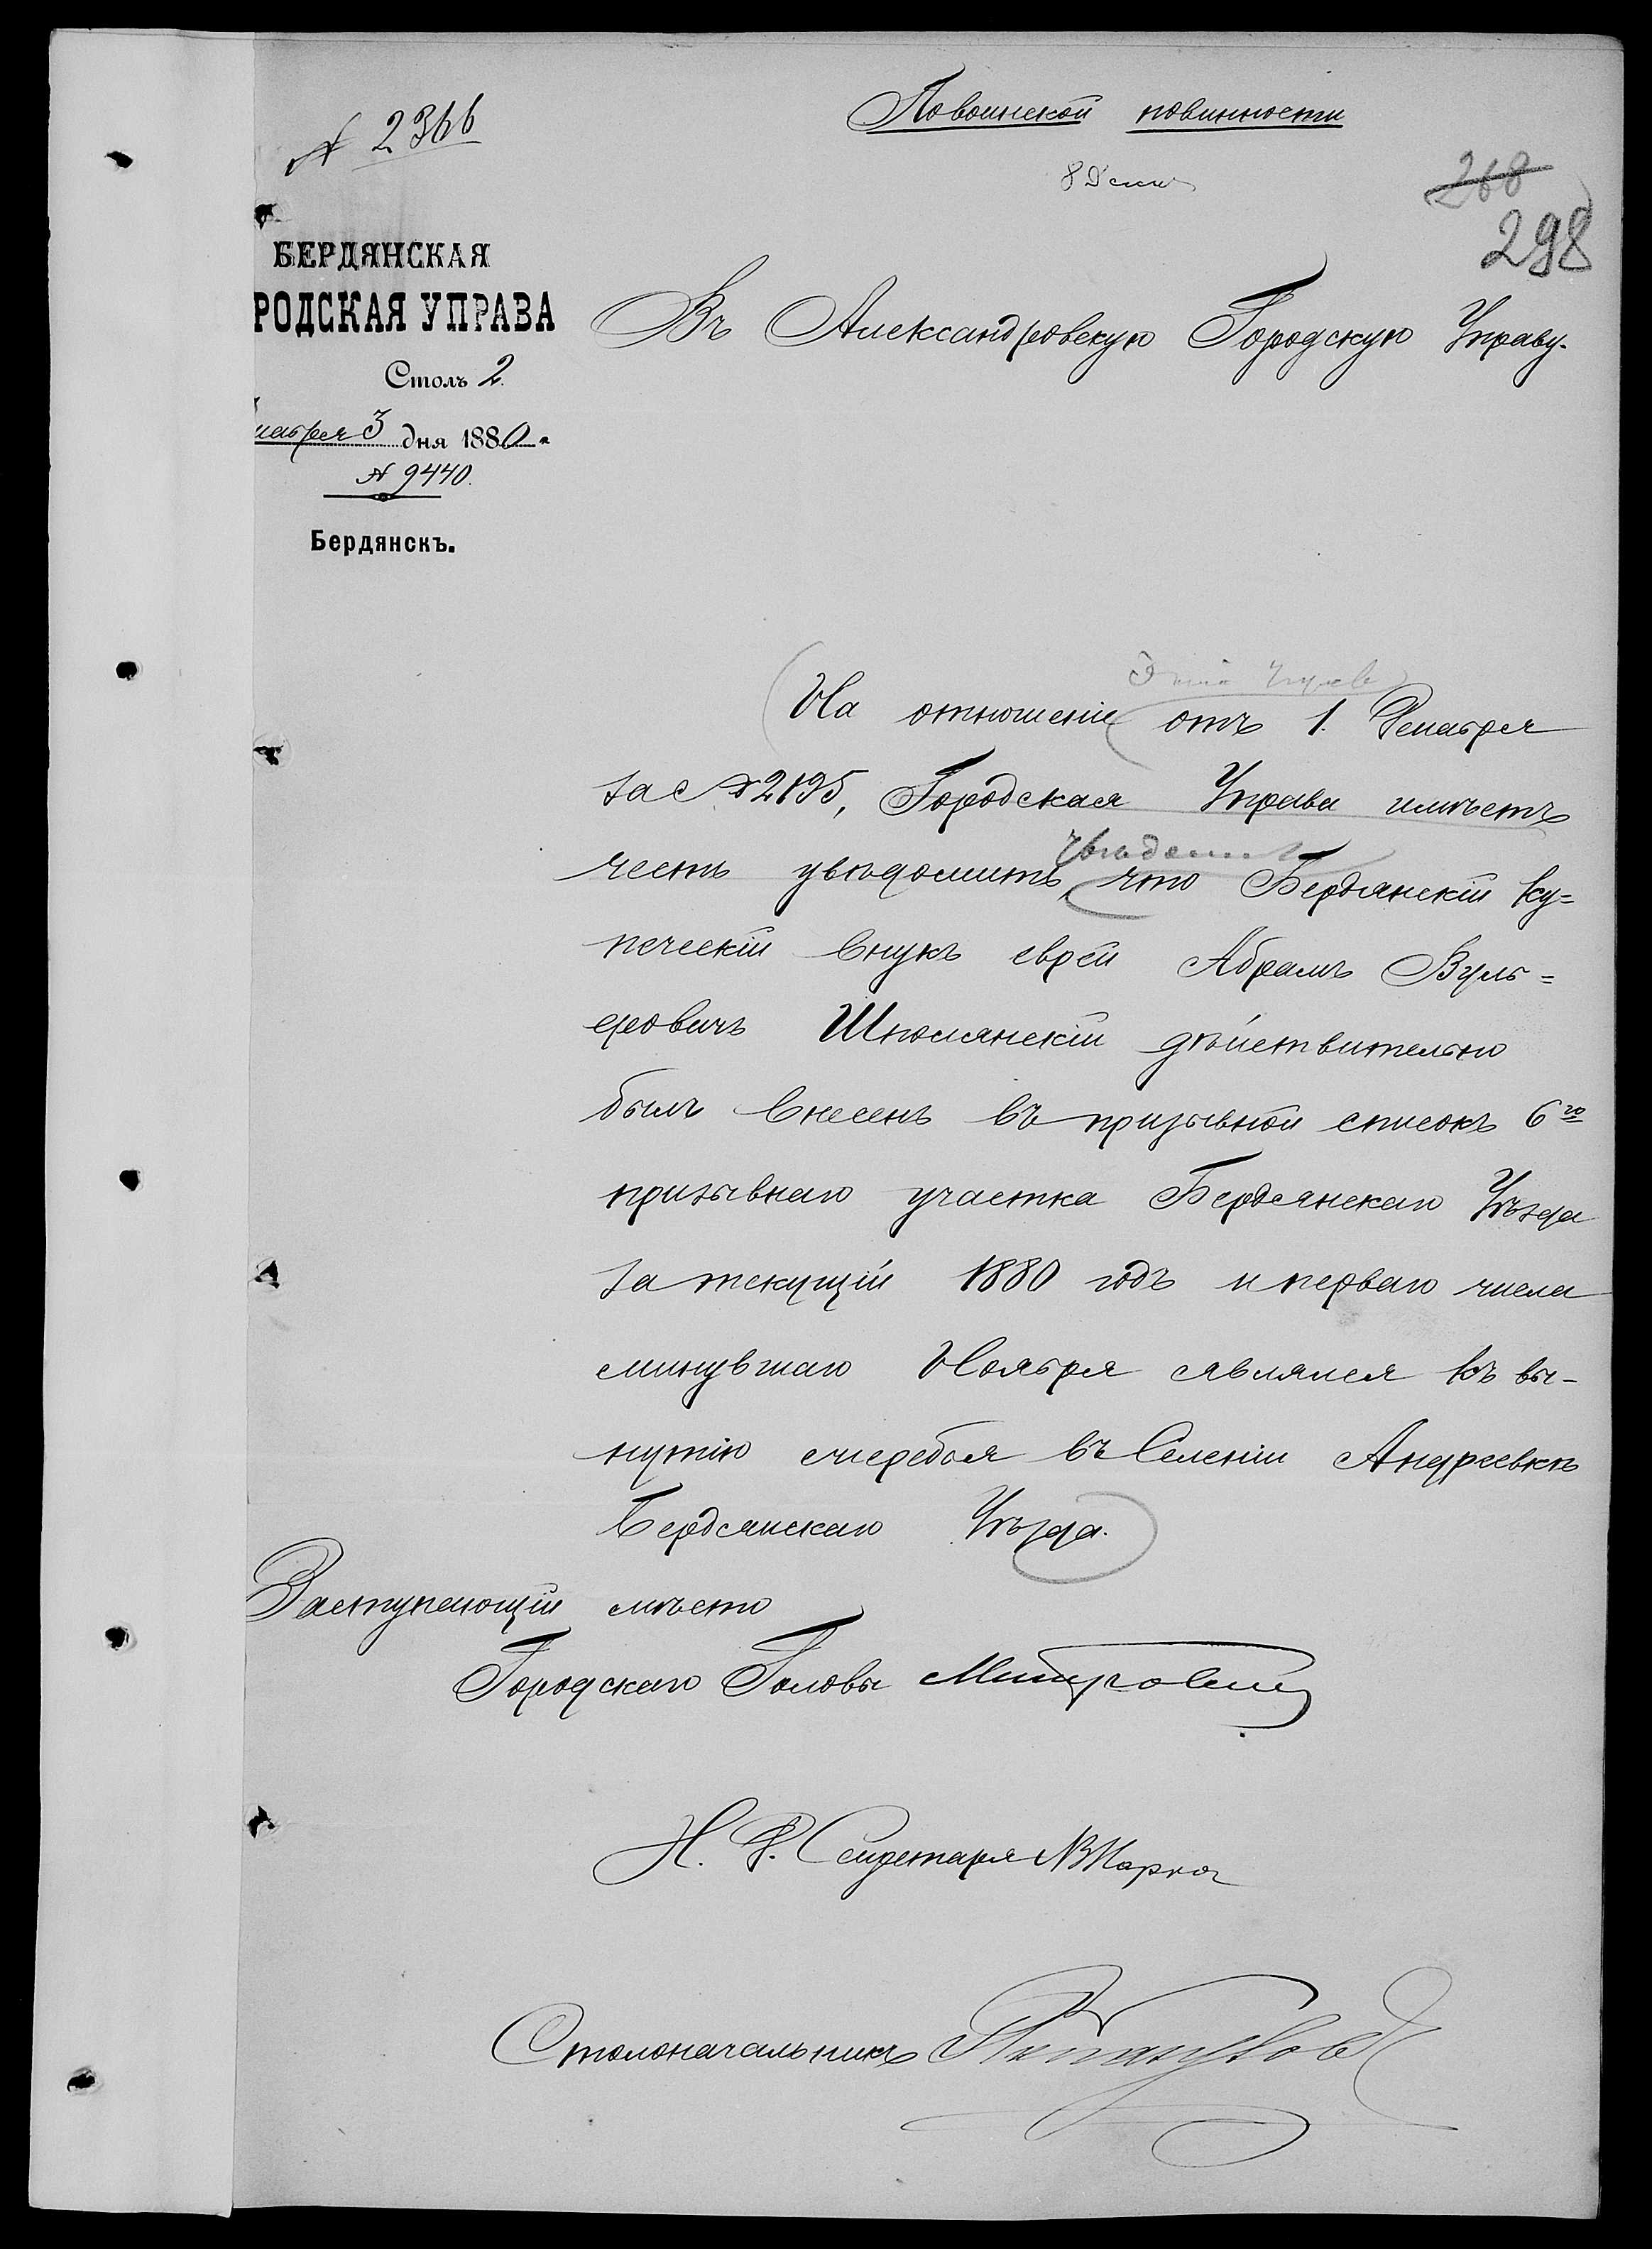 По воинской повинности
№ 2366
8 Дек
268
298
БЕРДЯНСКАЯ
РОДСКАЯ УПРАВА
Столъ 2.
кабря 3 дня 1880 г.
№ 9440.
Бердянскъ.
Въ Александровскую Городскую Управу.
На отношеніе отъ 1. Декабря
за № 2195, Городская Управа имѣетъ
честь увѣдомить, что Бердянскій ку=
печескій внукъ еврей Абрамъ Вуль=
фовичъ Шполянскій дѣйствительно
былъ внесенъ въ призывной списокъ 6го
призывнаго участка Бердянскаго Уѣзда
за текущій 1880 годъ и перваго числа
минувшаго Ноября являлся къ вы-
нутію жеребья въ Селеніи Андреевкѣ
Бердянскаго Уѣзда.
Заступающій мѣсто
Городскаго Головы
И. Д. Секретаря
Столоначальникъ